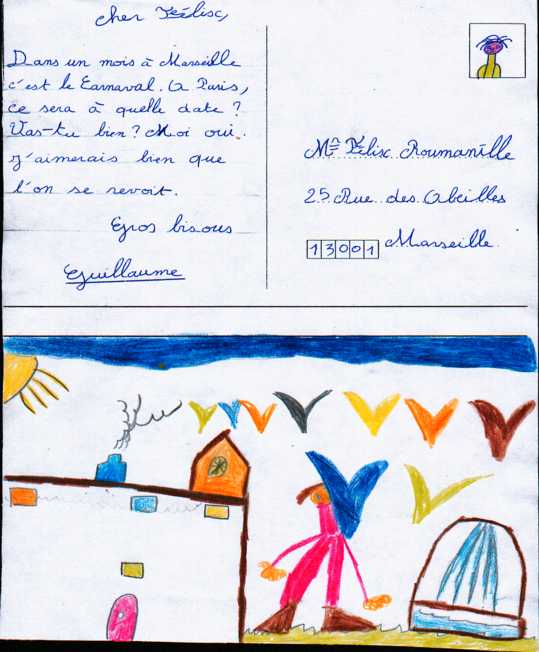 Cher Félix,
Dans un mois à Marseille
c'est le Carnaval. A Paris,
ce sera à quelle date ?
Vas-tu bien ? Moi oui.
J'aimerais bien que
l'on se revoit.
Gros bisous
Guillaume
Mr Félix Roumanille
25 Rue des Abeilles
13001 Marseille